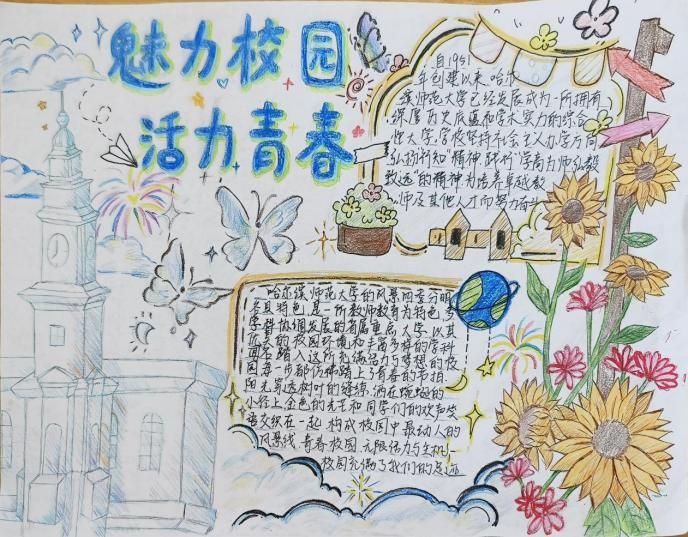 魅力校园
活力青春
自1951
年创建以来,哈尔
滨师范大学已经发展成为一所拥有
深厚历史底蕴和学术实力的综合
性大学,学校坚持社会主义办学方向
弘扬"行知"精神,践行"学高为师,弘毅
致远"的精神,为培养卓越教
师及其他人才而努力奋斗
哈尔滨师范大学的风景四季分明
各具特色,是一所教师教育为特色,多
学科协调发展的省属重点大学,以其
优美的校园环境和丰富多样的学科
踏入这所充满活力与梦想的校
园,每一步都仿佛踏上了青春的节拍
阳光穿透树叶的缝隙,洒在蜿蜒的
小径上,金色的光芒和同学们的欢声笑
语交织在一起,构成校园中最动人的
风景线,青春校园,无限活力与生机,
校园充满了我们的足迹